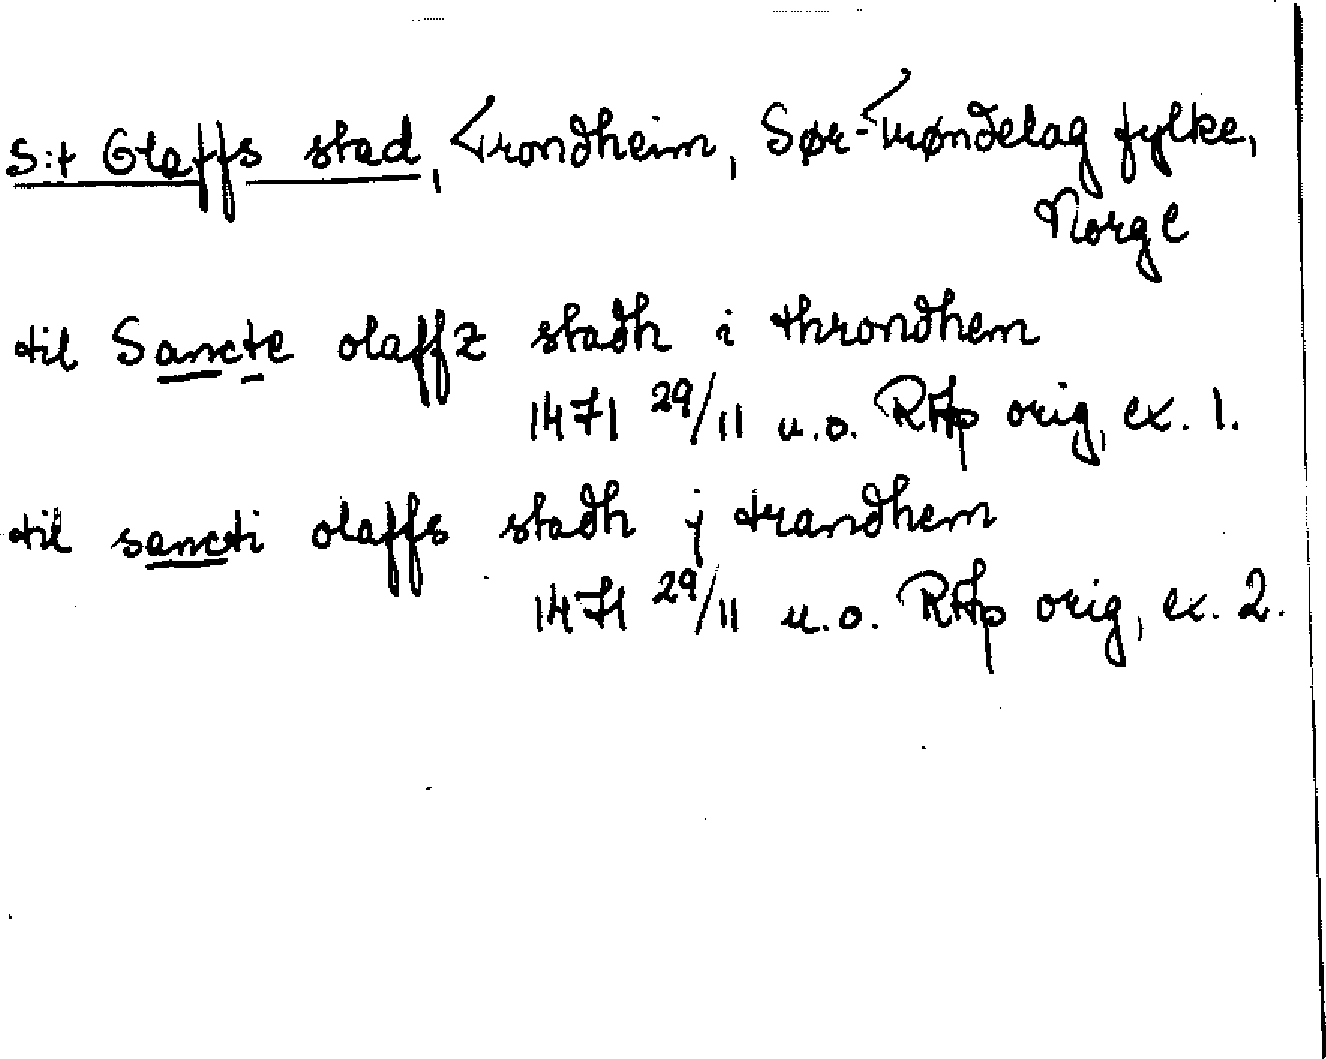 S:t Olaffs stad, Trondheim, Sør-Trøndelag fylke,
Norge
til Sancte olaffz stadh i throndhem
1471 29/11 u.o. RAp orig, ex. 1.
til sancti olaffs stadh j trandhem
1471 29/11 u.o. RAp orig, ex. 2.